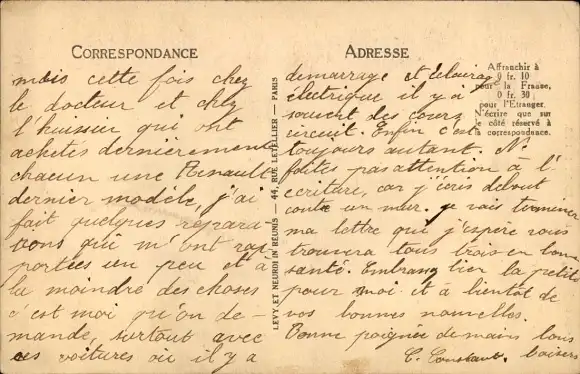 CORRESPONDANCE
mois cette fois chez
le docteur et chez
l'huissier qui ont
achetés dernièrement
chacun une Renault
dernier modèle, j'ai
fait quelques répara
tions qui m'ont rap
portées un peu et à
la moindre des choses
c'est moi qu'on de-
mande, surtout avec
ces voitures où il y a
LEVY ET NEURDIN REUNIS — 44, RUE LETELLIER — PARIS
ADRESSE
Affranchir à
0 fr. 10
pour la France,
0 fr. 30
pour l'Etranger.
N'écrire que sur
le côté réservé à
la correspondance.
démarrage et éclairage
électrique il y a
souvent des cours
circuit. Enfin c'est
toujours autant. Ne
faites pas attention à l'
écriture, car j'écris debout
contre un mur. je vais terminer
ma lettre qui j'espère vous
trouvera tous trois en bonne
santé. Embrassez bien la petite
pour moi et à bientôt de
vos bonnes nouvelles.
Bonne poignée de mains bons
C. Constant. baisers